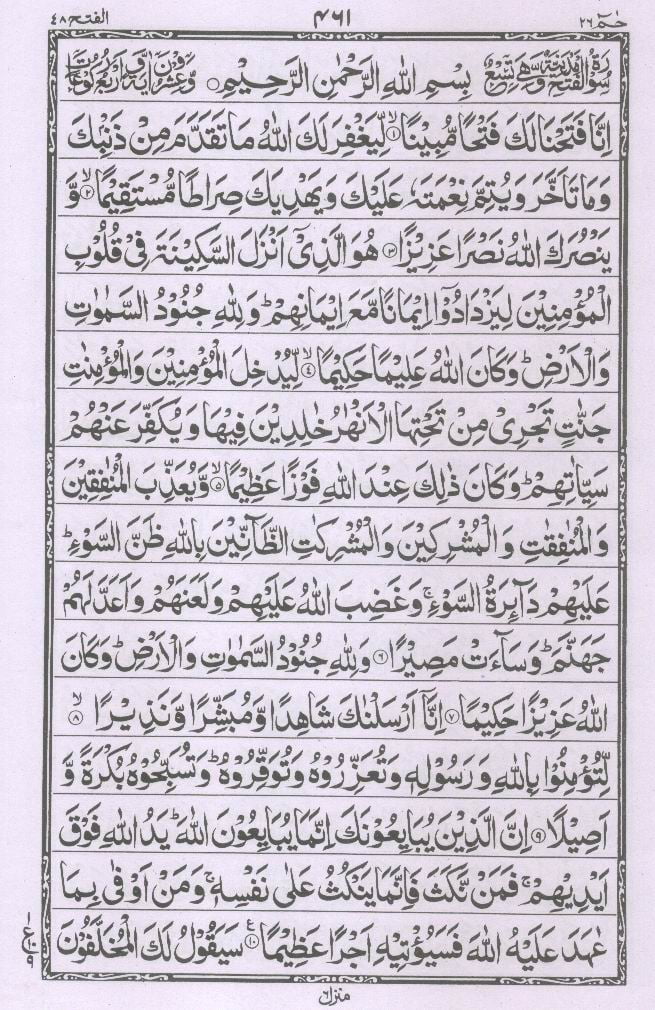 حٰمٓ ٢٦ ٤٦١ الفتح ٤٨
سُوْرَةُ الْفَتْحِ مَدَنِيَّةٌ وَّهِيَ تِسْعٌ بِسْمِ اللهِ الرَّحْمٰنِ الرَّحِيْمِ ○ وَّعِشْرُوْنَ اٰيَةً وَّاَرْبَعُ رُكُوْعَاتٍ
اِنَّا فَتَحْنَا لَكَ فَتْحًا مُّبِيْنًا ۙ﴿١﴾ لِّيَغْفِرَ لَكَ اللهُ مَا تَقَدَّمَ مِنْ ذَنْۢبِكَ
وَمَا تَاَخَّرَ وَيُتِمَّ نِعْمَتَهٗ عَلَيْكَ وَيَهْدِيَكَ صِرَاطًا مُّسْتَقِيْمًا ۙ﴿٢﴾ وَّ
يَنْصُرَكَ اللهُ نَصْرًا عَزِيْزًا ﴿٣﴾ هُوَ الَّذِيْٓ اَنْزَلَ السَّكِيْنَةَ فِيْ قُلُوْبِ
الْمُؤْمِنِيْنَ لِيَزْدَادُوْٓا اِيْمَانًا مَّعَ اِيْمَانِهِمْ ؕ وَلِلّٰهِ جُنُوْدُ السَّمٰوٰتِ
وَالْاَرْضِ ؕ وَكَانَ اللهُ عَلِيْمًا حَكِيْمًا ۙ﴿٤﴾ لِّيُدْخِلَ الْمُؤْمِنِيْنَ وَالْمُؤْمِنٰتِ
جَنّٰتٍ تَجْرِيْ مِنْ تَحْتِهَا الْاَنْهٰرُ خٰلِدِيْنَ فِيْهَا وَيُكَفِّرَ عَنْهُمْ
سَيِّاٰتِهِمْ ؕ وَكَانَ ذٰلِكَ عِنْدَ اللهِ فَوْزًا عَظِيْمًا ۙ﴿٥﴾ وَّيُعَذِّبَ الْمُنٰفِقِيْنَ
وَالْمُنٰفِقٰتِ وَالْمُشْرِكِيْنَ وَالْمُشْرِكٰتِ الظَّآنِّيْنَ بِاللهِ ظَنَّ السَّوْءِ ؕ
عَلَيْهِمْ دَآئِرَةُ السَّوْءِ ۚ وَغَضِبَ اللهُ عَلَيْهِمْ وَلَعَنَهُمْ وَاَعَدَّ لَهُمْ
جَهَنَّمَ ؕ وَسَآءَتْ مَصِيْرًا ﴿٦﴾ وَلِلّٰهِ جُنُوْدُ السَّمٰوٰتِ وَالْاَرْضِ ؕ وَكَانَ
اللهُ عَزِيْزًا حَكِيْمًا ﴿٧﴾ اِنَّآ اَرْسَلْنٰكَ شَاهِدًا وَّمُبَشِّرًا وَّنَذِيْرًا ۙ﴿٨﴾
لِّتُؤْمِنُوْا بِاللهِ وَرَسُوْلِهٖ وَتُعَزِّرُوْهُ وَتُوَقِّرُوْهُ ؕ وَتُسَبِّحُوْهُ بُكْرَةً وَّ
اَصِيْلًا ﴿٩﴾ اِنَّ الَّذِيْنَ يُبَايِعُوْنَكَ اِنَّمَا يُبَايِعُوْنَ اللهَ ؕ يَدُ اللهِ فَوْقَ
اَيْدِيْهِمْ ۚ فَمَنْ نَّكَثَ فَاِنَّمَا يَنْكُثُ عَلٰى نَفْسِهٖ ۚ وَمَنْ اَوْفٰى بِمَا
عٰهَدَ عَلَيْهُ اللهَ فَسَيُؤْتِيْهِ اَجْرًا عَظِيْمًا ﴿١٠﴾ ع سَيَقُوْلُ لَكَ الْمُخَلَّفُوْنَ
١ ع ١٠ ٩
منزل ٦